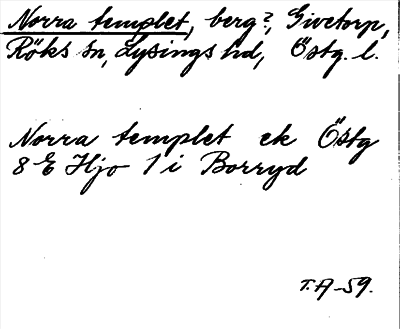 Norra templet, berg?, Givetorp,
Röks sn, Lysings hd, Östg. l.
Norra templet ek Östg
8 E Hjo 1 i Borryd
T.A-59.